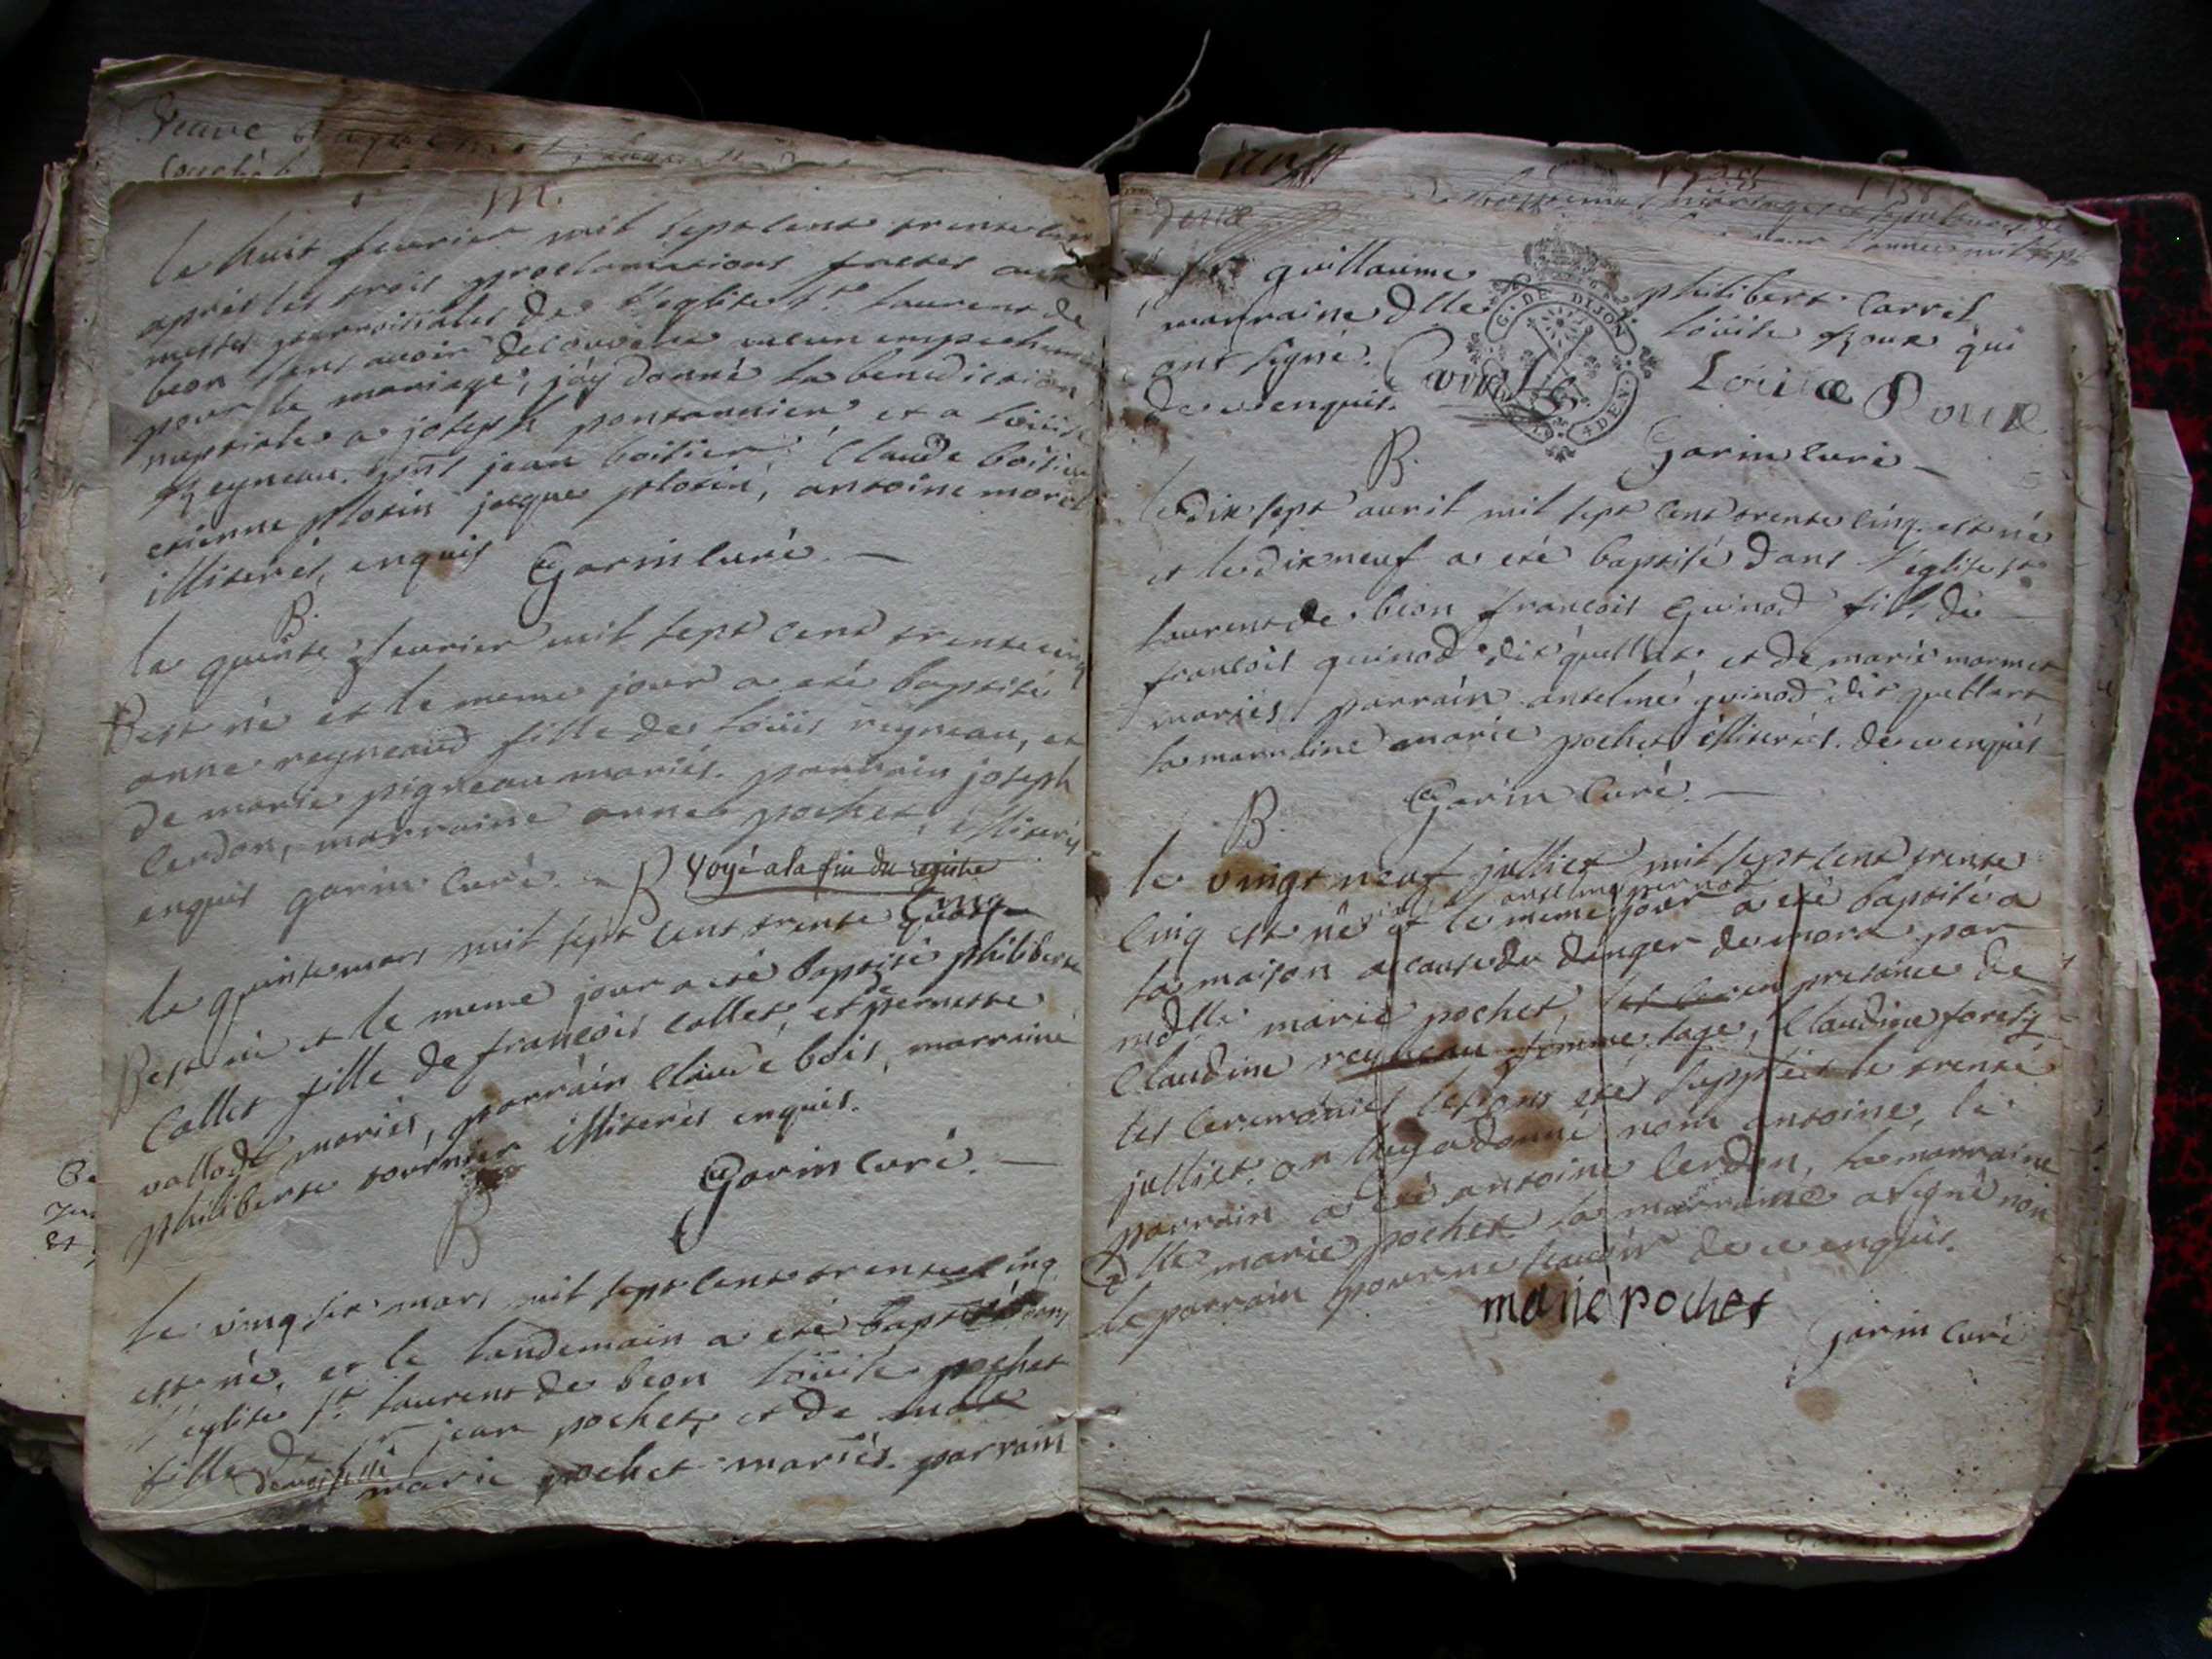 Veuve
M.
le huit feurier mil septcent trente cinq
apres les trois proclamations faites aux
messes parroissiales de l'eglise st. laurent de
beon sans auoir decouuert aucun empechement
pour le mariage, j'ay donné la benediction
nuptiale a joseph pontannier et a loüise
reyneau. jean boitier, claude boitier
etienne plotin jacque plotin, antoine morel
illiterés, enquis Garin curé.
B.
le quinse feurier mil sept cent trente cinq
est né et le meme jour a eté baptisé
anne reyneaud fille de loüis reyneau, et
de marie pigneau mariés. parrain joseph
cerdon, marraine anne pochet, illiterés
enquis garin curé.
B voyé a la fin du registre
cinq
le quinse mars mil sept cent trente quatre
B est né et le meme jour a eté baptisé philiberte
collet fille de françois collet, et de pernette
vallod mariés, parrain claude bois, marraine
philiberte tournier illiterés enquis.
Garin curé.
B
le vingsix mars mil sept cent trente cinq
est né, et le landemain a eté baptisé dans
l'eglise st. laurent de beon loüise pochet
fille de sr jean pochet, et de
demoiselle marie pochet mariés. parrain
guillaume philibert carrel
marraine dlle loüise roux qui
ont signé. Carrel Loüise Roux
de ce enquis.
G. DE DIJON
Garin curé
B.
le dix sept auril mil sept cent trente cinq est né
et le dixneuf a eté baptisé dans l'eglise st
laurent de beon francois guinod fils de
francois guinod dit quellat et de marie mormet
mariés parrain antelme guinod dit quellat
la marraine marie pochet illiterés. de ce enquis
Garin Curé.
B.
le vingt neuf julliet mil sept cent trente
cinq est né et le meme jour a eté baptisé a
la maison a cause du danger de mort par
mdlle marie pochet, en presence de
claudine reyneau femme sage, claudine forest
les ceremonies ont eté supplées le trente
julliet. on luy a donné nom antoine, le
parrain a eté antoine cerdon, la marraine
dlle marie pochet la marraine a signé non
le parrain pour ne sauoir de ce enquis.
marie pochet
Garin curé